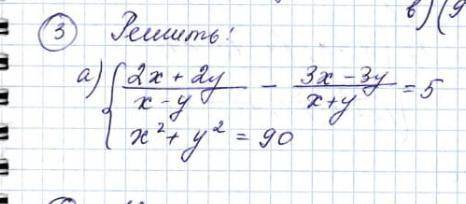 в) (9
3 Решить:
а) { (2x + 2y)/(x - y) - (3x - 3y)/(x + y) = 5
x² + y² = 90